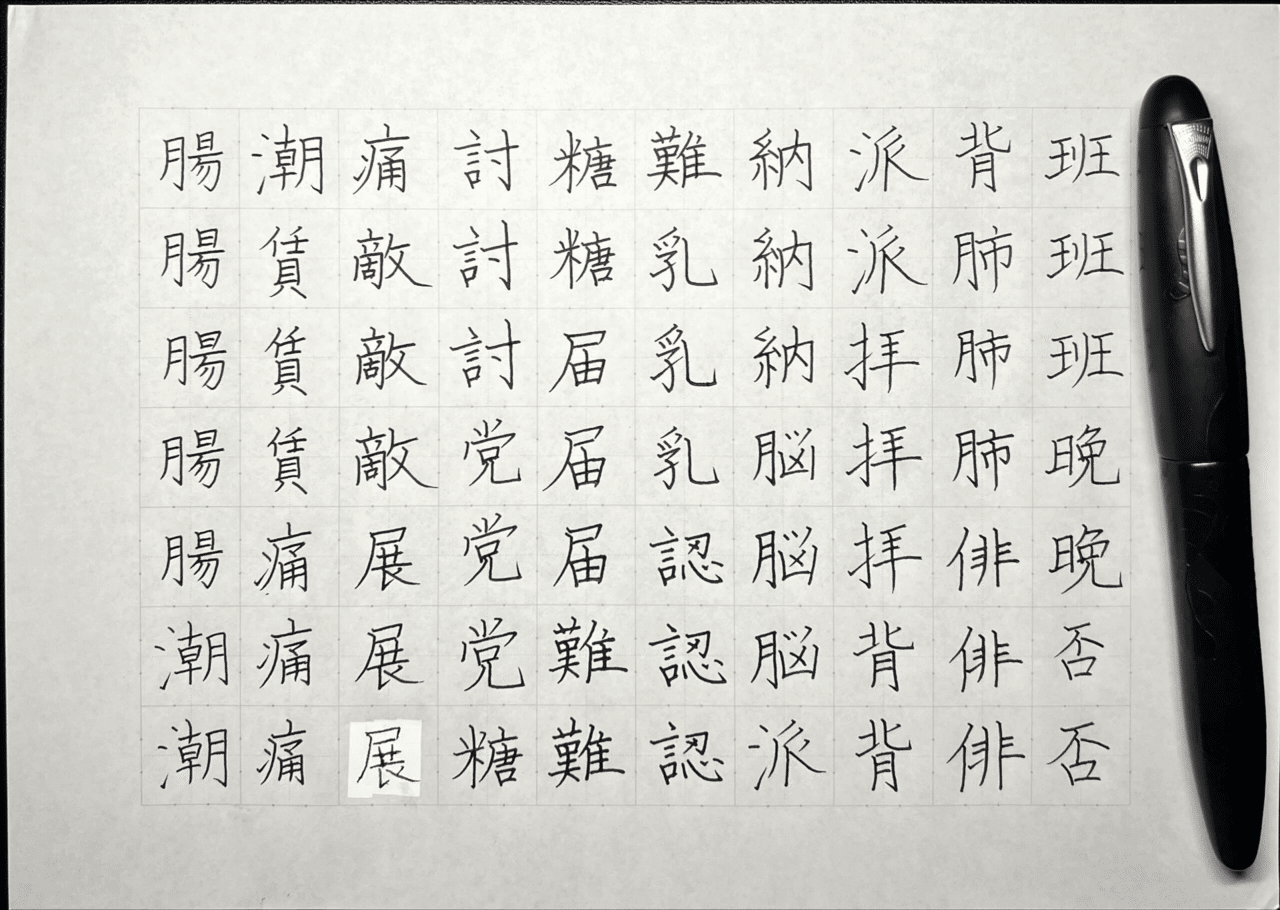 腸腸腸腸腸潮潮
潮賃賃賃痛痛痛
痛敵敵敵展展展
討討討党党党糖
糖糖届届届難難
難乳乳乳認認認
納納納脳脳脳派
派派拝拝拝背背
背肺肺肺俳俳俳
班班班晩晩否否